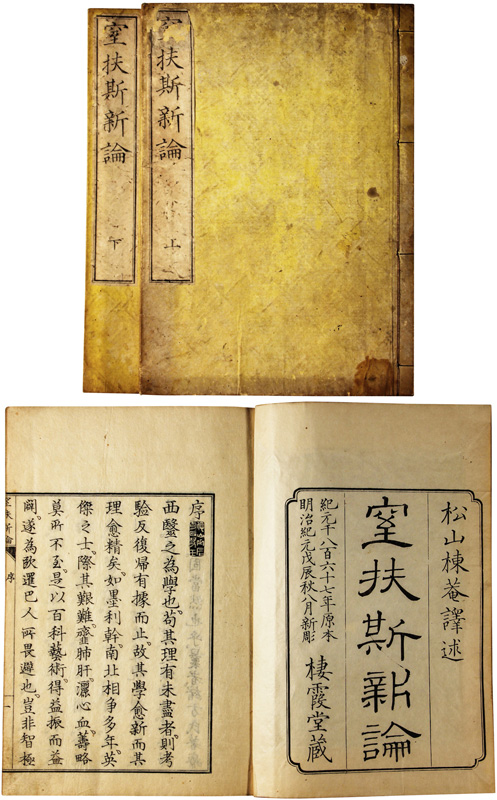 窒扶斯新論
上
窒扶斯新論
下
松山棟菴譯述
窒扶斯新論
紀元千八百六十七年原本
明治紀元戊辰秋八月新彫
棲霞堂蔵
序
西醫之為學也。苟其理有未盡者。則考
驗反復帰有據而止。故其學愈新而其
理愈精矣。如墨利幹。南北相爭多年。英
傑之士。際其艱難。齏肺肝。灑心血。籌略
莫所不至。是以百科藝術。得益振而益
闢。遂為歐邏巴人所畏避也。豈非智極
窒扶斯新論
序
一